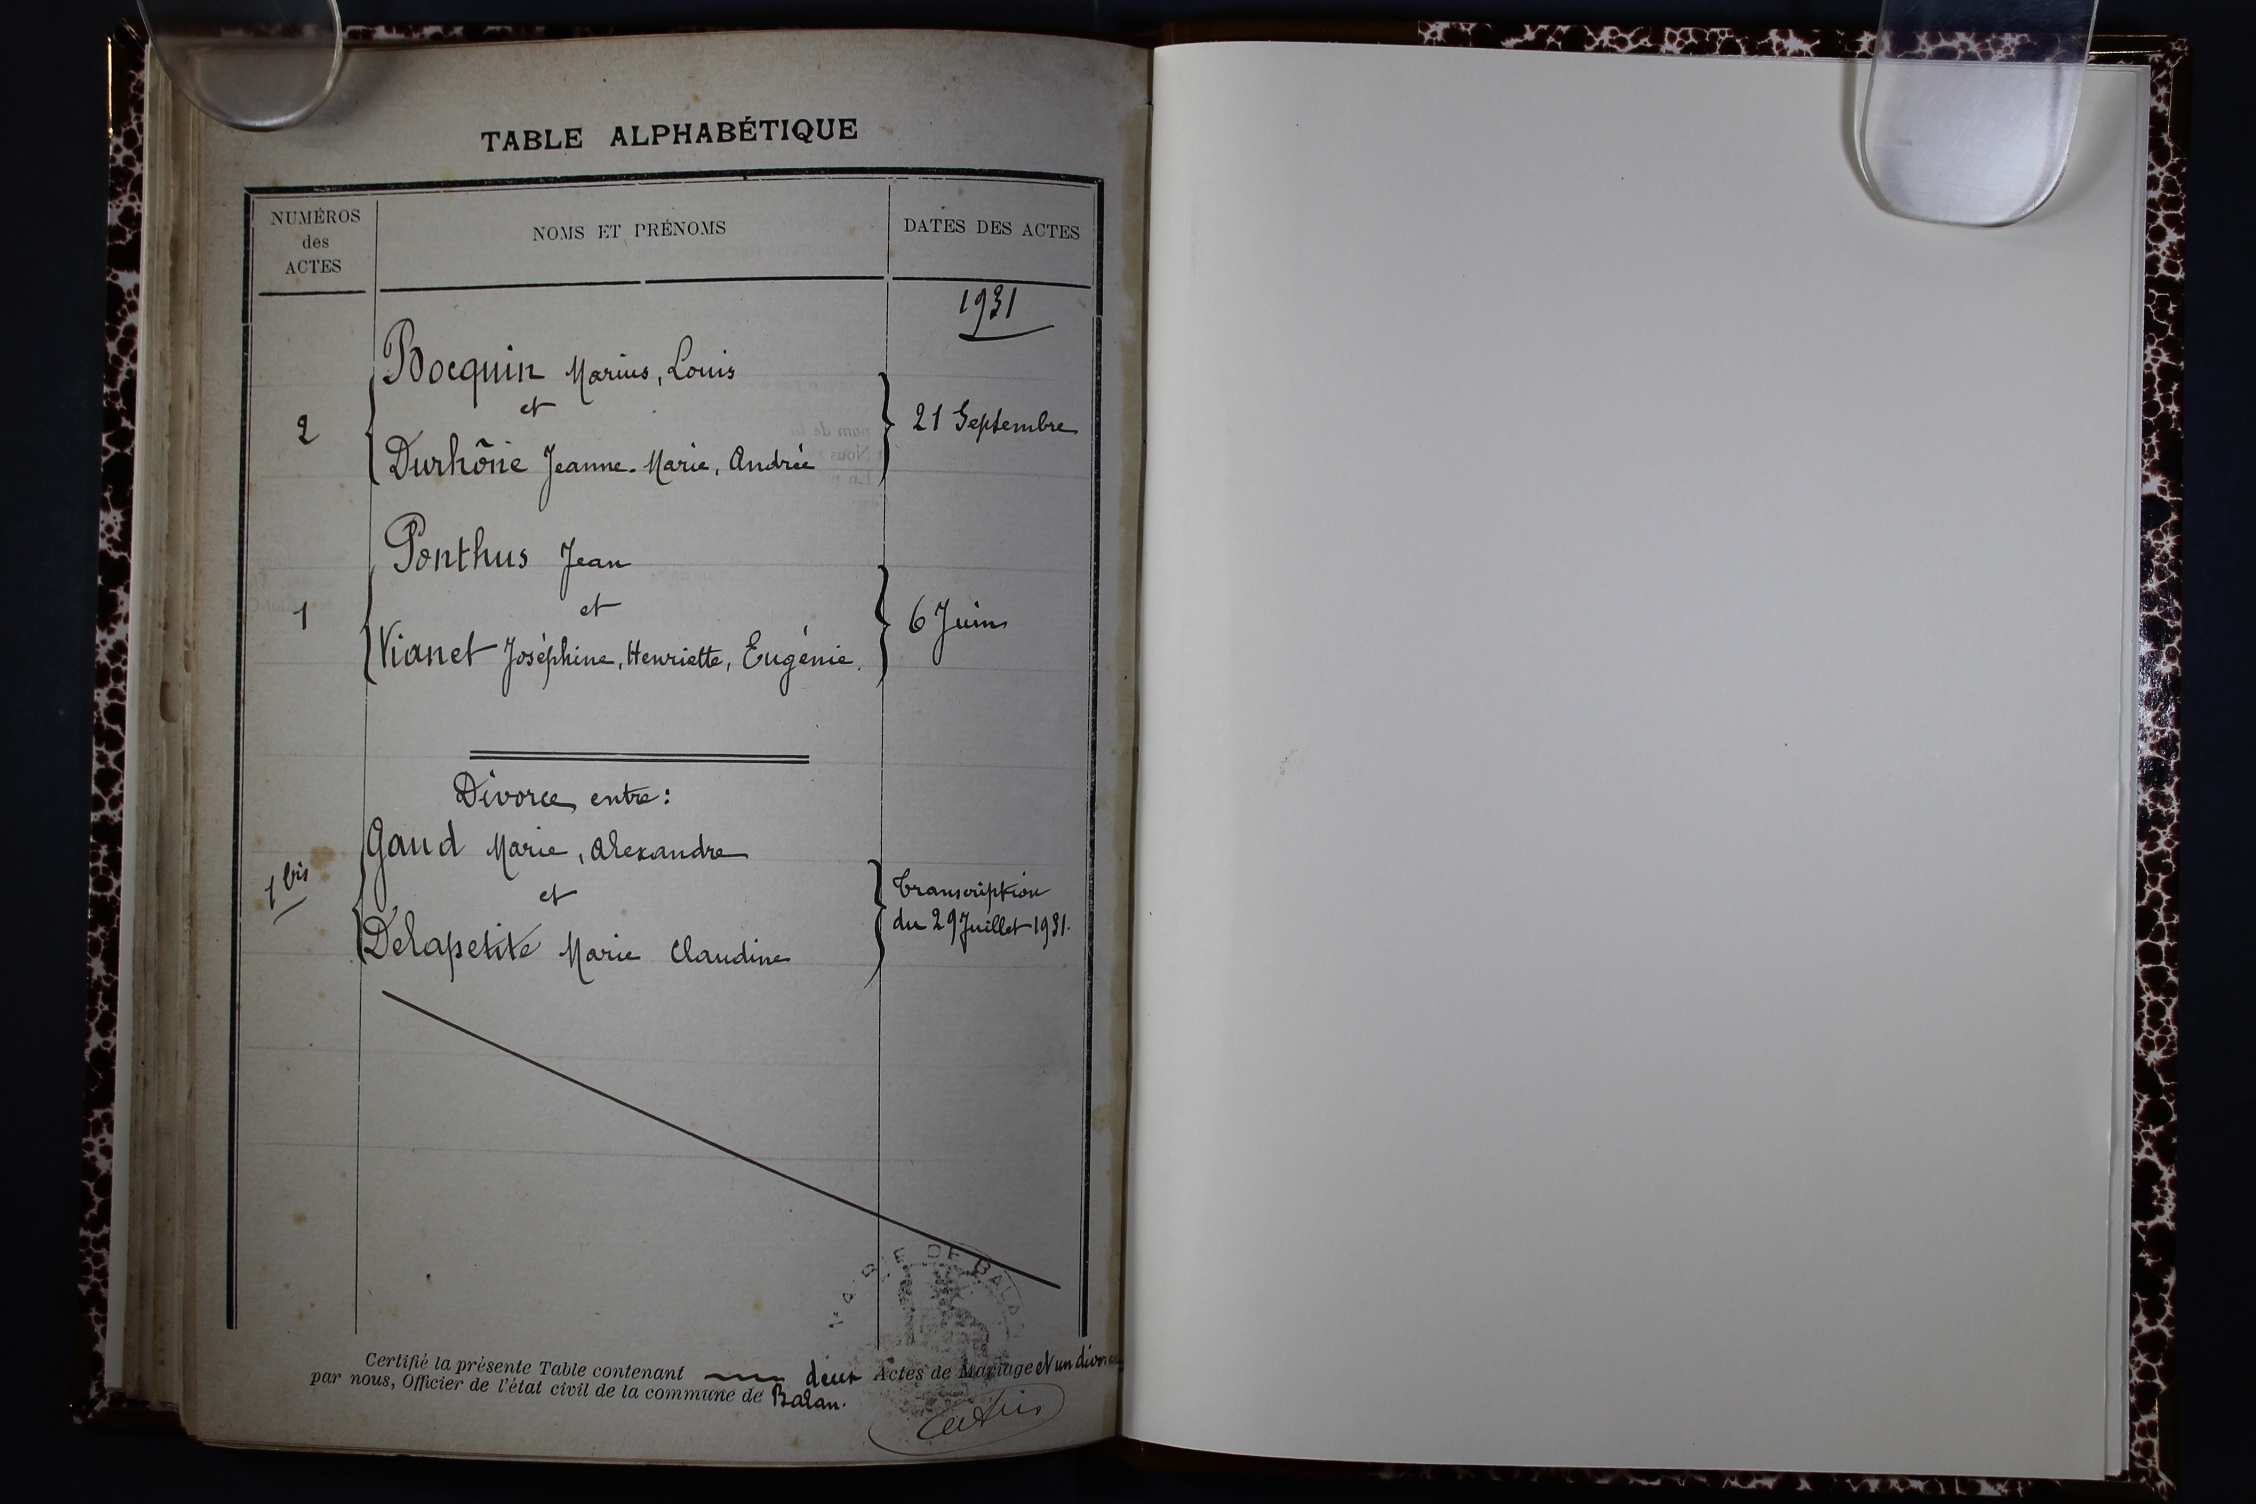 TABLE ALPHABÉTIQUE
NUMÉROS
des
ACTES
NOMS ET PRÉNOMS
DATES DES ACTES
1931
Bocquin Marius, Louis
et
2
21 Septembre
Durhône Jeanne-Marie, Andrée
Ponthus Jean
et
1
6 Juin
Vianet Joséphine, Henriette, Eugénie.
Divorce entre:
Gaud Marie, Alexandre
1 bis
et
Transcription
du 29 Juillet 1931.
Delapetite Marie Claudine
MAIRIE DE BALAN
Certifié la présente Table contenant deux Actes de Mariage et un divorce
par nous, Officier de l'état civil de la commune de Balan.